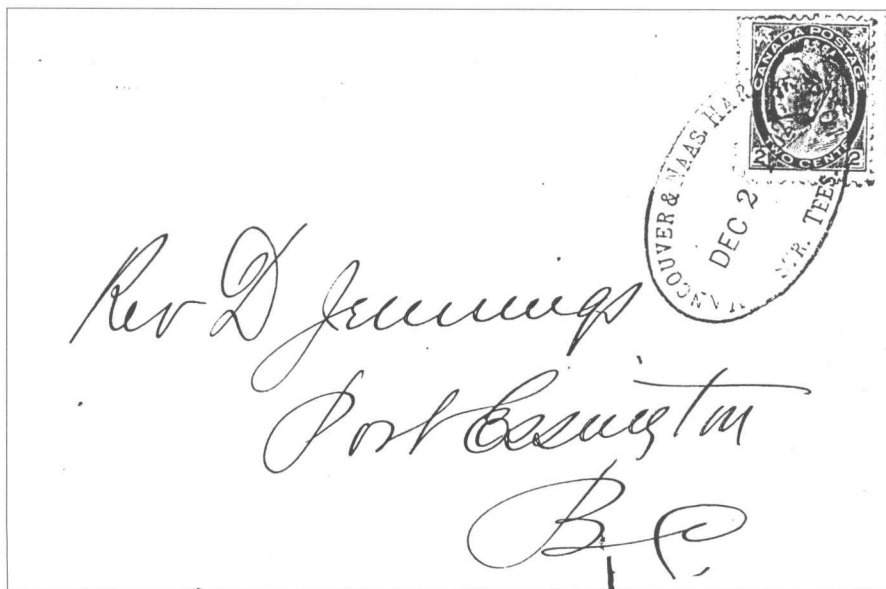 CANADA POSTAGE
2 TWO CENTS 2
VANCOUVER & NAAS. HAR
DEC 2
STR. TEES.
Rev D Jennings
Port Essington
B.C.